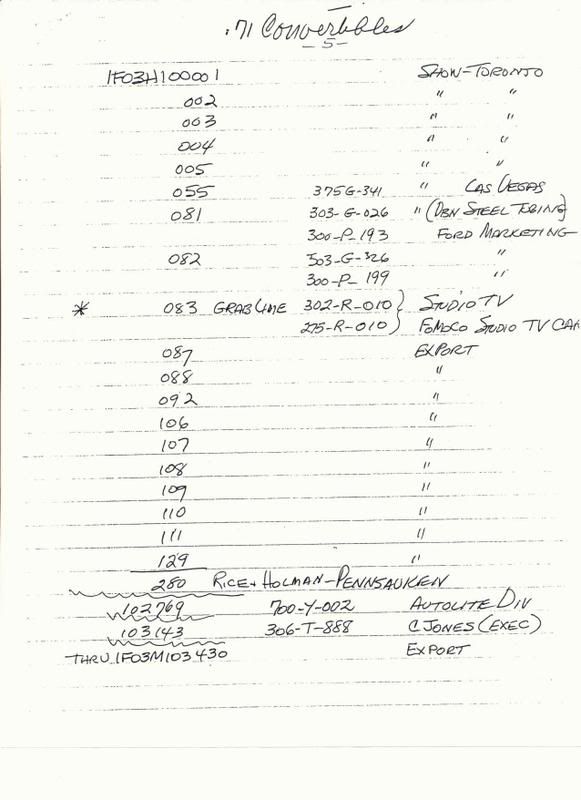 '71 Convertibles
- 5 -
1F03H100001 SHOW-TORONTO
002 " "
003 " "
004 " "
005 " "
055 375G-341 " LAS VEGAS
081 303-G-026 " (DBN STEEL TUBING)
300-P-193 FORD MARKETING
082 303-G-326 "
300-P-199 "
* 083 GRABLIME 302-R-010 } STUDIO TV
275-R-010 } FOMOCO STUDIO TV CAR
087 EXPORT
088 "
092 "
106 "
107 "
108 "
109 "
110 "
111 "
129 "
280 RICE + HOLMAN-PENNSAUKEN
102769 700-Y-002 AUTOLITE DIV
103143 306-T-888 C JONES (EXEC)
THRU 1F03M103430 EXPORT